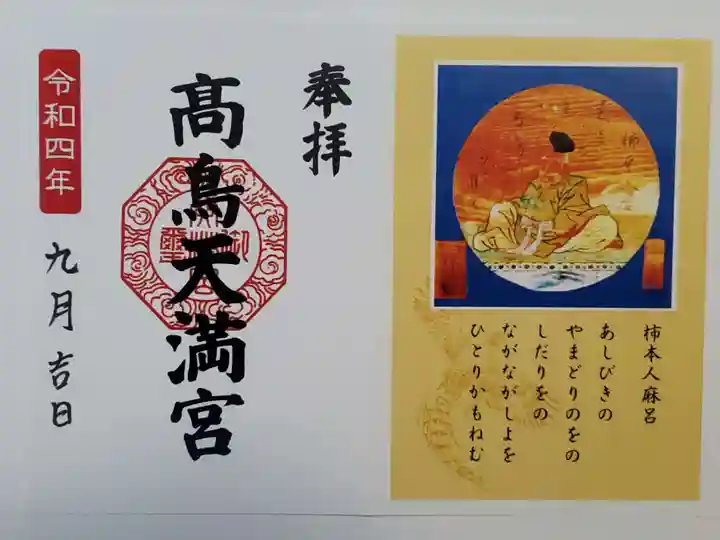 柿本人麻呂
あしびきの
やまどりのをの
しだりをの
ながながしよを
ひとりかもねむ
奉拝
髙鳥天満宮
令和四年
九月吉日